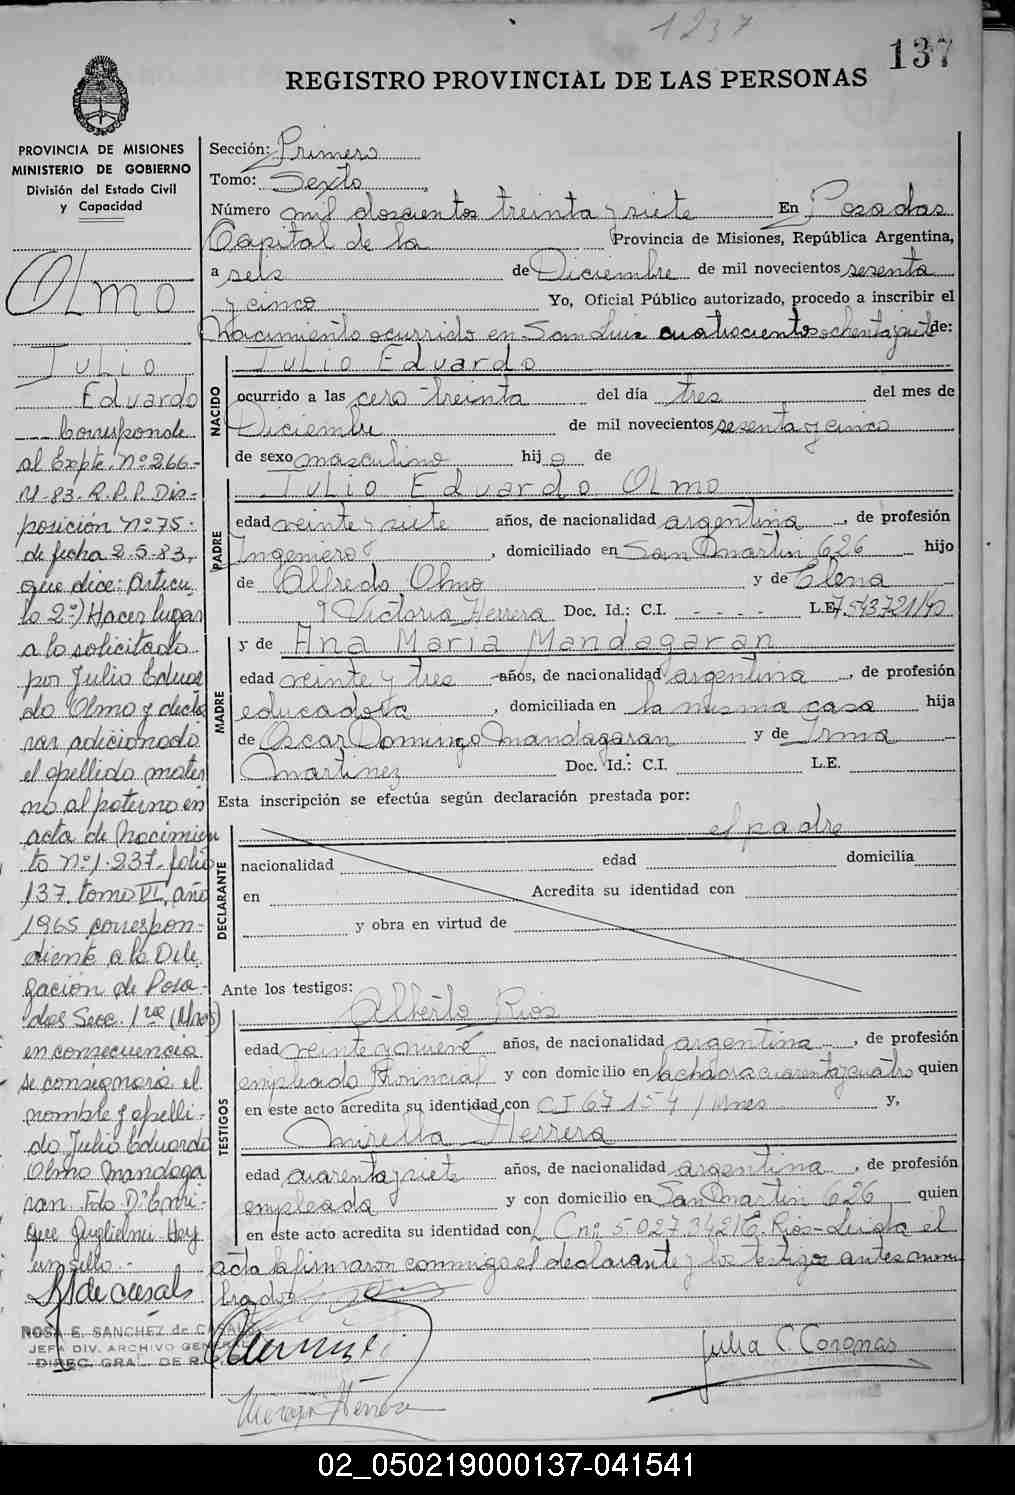 1237
137
REGISTRO PROVINCIAL DE LAS PERSONAS
PROVINCIA DE MISIONES
MINISTERIO DE GOBIERNO
División del Estado Civil
y Capacidad
Olmo
Julio
Eduardo
Corresponde
al Expte. nº 266-
83. R.P.P. Dis-
posición nº 75.
de fecha 2.5.83,
que dice: Artícu
lo 2º) Hacer lugar
a lo solicitado
por Julio Eduar
do Olmo y decla
rar adicionado
el apellido mater
no al paterno en
acta de Nacimien
to nº 1.237. folio
137. tomo VI, año
1965 correspon-
diente a la Dele
gación de Posa-
das Secc. 1ra (Mnes)
en consecuencia
se consignará el
nombre y apelli-
do Julio Eduardo
Olmo Mandaga
ran. Fdo D. Enri-
que Guglielmi Hay
un sello.-
ROSA E. SANCHEZ de
JEFA DIV. ARCHIVO GENERAL
DIREC. GRAL. DE R.
Sección: Primera
Tomo: Sexto
Número mil doscientos treinta y siete En Posadas
Capital de la Provincia de Misiones, República Argentina,
a seis de Diciembre de mil novecientos sesenta
y cinco Yo, Oficial Público autorizado, procedo a inscribir el
Nacimiento ocurrido en San Luis cuatrocientos ochenta y siete de:
NACIDO
Julio Eduardo
ocurrido a las cero treinta del día tres del mes de
Diciembre de mil novecientos sesenta y cinco
de sexo masculino hijo de
PADRE
Julio Eduardo Olmo
edad veinte y siete años, de nacionalidad argentina, de profesión
Ingeniero, domiciliado en San Martin 626 hijo
de Alfredo Olmo y de Elena
Victoria Herrera Doc. Id.: C.I. - - - - L.E. 7.543.721/40
MADRE
y de Ana Maria Mandagaran
edad veinte y tres años, de nacionalidad argentina, de profesión
educadora, domiciliada en la misma casa hija
de Oscar Domingo Mandagaran y de Irma
Martinez Doc. Id.: C.I. L.E.
Esta inscripción se efectúa según declaración prestada por:
DECLARANTE
el padre
nacionalidad edad domicilia
en Acredita su identidad con
y obra en virtud de
Ante los testigos:
TESTIGOS
Alberto Rios
edad veinte y nueve años, de nacionalidad argentina, de profesión
empleado Provincial y con domicilio en la chacra cuarenta y cuatro quien
en este acto acredita su identidad con CI 67154 / Mnes y,
Mirella Herrera
edad cuarenta y siete años, de nacionalidad argentina, de profesión
empleada y con domicilio en San Martin 626 quien
en este acto acredita su identidad con L C nº 5.027.342 E. Rios- Leida el
acta la firmaron conmigo el declarante y los testigos antes nom
brados
Julia C. Coronas
Herrera
02_050219000137-041541